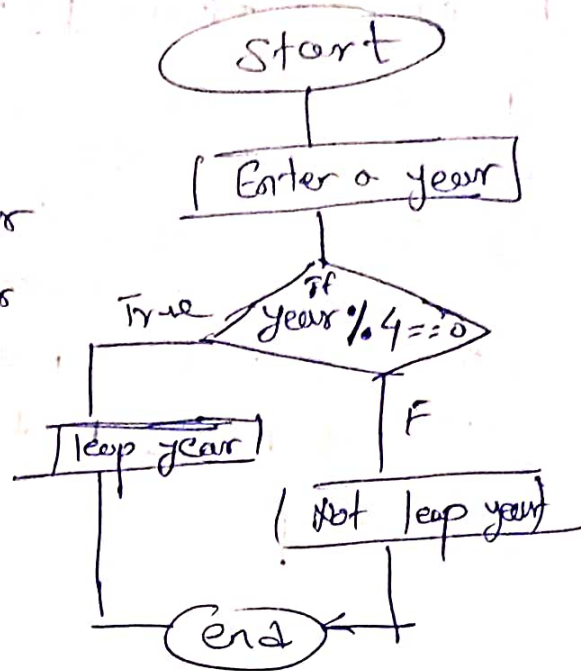 Start
Enter a year
If
True
year % 4 == 0
F
leap year
Not leap year
end